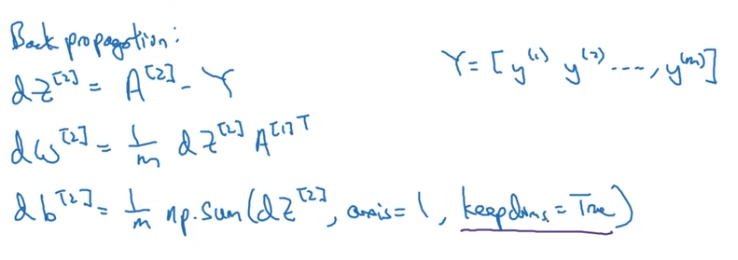 Back propagation:
Y = [y^(1) y^(2) ..., y^(m)]
dZ^[2] = A^[2] - Y
dW^[2] = 1/m dZ^[2] A^[1]T
db^[2] = 1/m np.sum(dZ^[2], axis=1, keepdims=True)